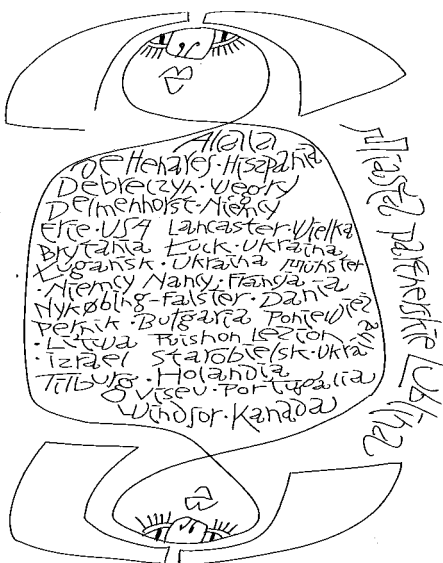 Alcala
De Henares·Hiszpania
Debreczyn·Węgry
Delmenhorst·Niemcy
Erie·USA Lancaster·Wielka
Brytania Łuck·Ukraina
Ługańsk·Ukraina Münster
·Niemcy Nancy·Francja
Nykøbing-Falster·Dania
Pernik·Bułgaria Poniewież
·Litwa Rishon Lezion
·Izrael Starobielsk·Ukraina
Tilburg·Holandia
Viseu·Portugalia
Windsor·Kanada
Miasta partnerskie Lublina